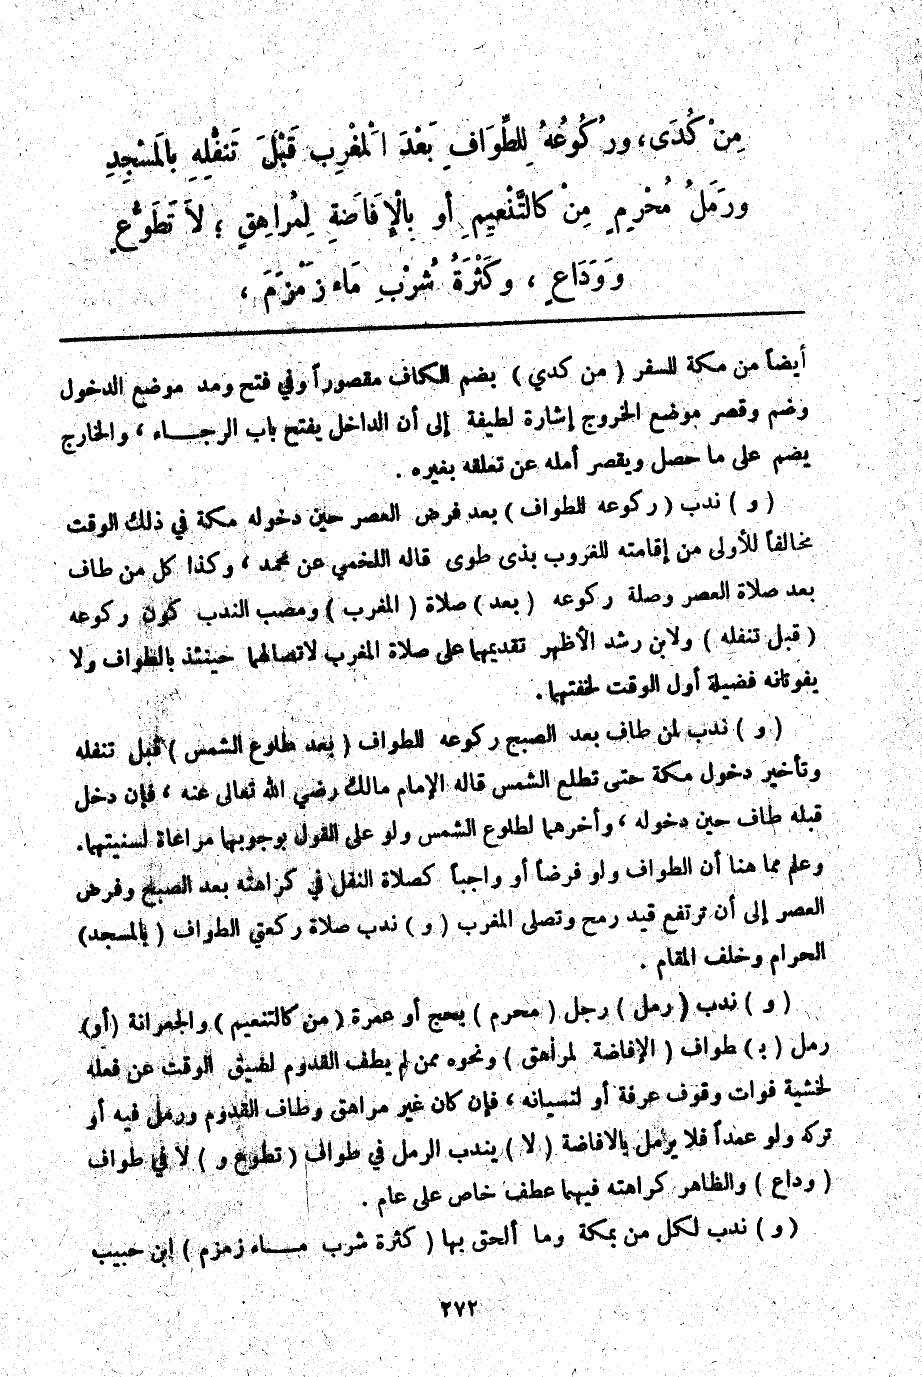 مِنْ كُدَى، ورُكُوعُهُ لِلطَّوَافِ بَعْدَ الْمَغْرِبِ قَبْلَ تَنَفُّلِهِ بِالمَسْجِدِ
ورَمَلُ مُحْرِمٍ مِنْ كالتَّنْعِيمِ أو بِالْإِفَاضَةِ لِمُراهِقٍ ؛ لاَ تَطَوُّعٍ
وَوَدَاعٍ ، وكَثْرَةُ شُرْبِ مَاء زَمْزَمَ ،
أيضاً من مكة للسفر ( من كدي ) بضم الكاف مقصوراً وفي فتح ومد موضع الدخول
وضم وقصر موضع الخروج إشارة لطيفة إلى أن الداخل يفتح باب الرجــاء ، والخارج
يضم على ما حصل ويقصر أمله عن تعلقه بغيره .
( و ) ندب ( ركوعه للطواف ) بعد فرض العصر حين دخوله مكة في ذلك الوقت
مخالفاً للأولى من إقامته للغروب بذى طوى قاله اللخمي عن محمد ، وكذا كل من طاف
بعد صلاة العصر وصلة ركوعه ( بعد ) صلاة ( المغرب ) ومصب الندب كون ركوعه
( قبل تنفله ) ولابن رشد الأظهر تقديمهما على صلاة المغرب لاتصالهما حينئذ بالطواف ولا
يفوتانه فضيلة أول الوقت لخفتهما .
( و ) ندب لمن طاف بعد الصبح ركوعه للطواف ( بعد طلوع الشمس ) قبل تنفله
وتأخير دخول مكة حتى تطلع الشمس قاله الإمام مالك رضي الله تعالى عنه ، فإن دخل
قبله طاف حين دخوله ، وأخرهما لطلوع الشمس ولو على القول بوجوبهما مراعاة لسنيتهما.
وعلم مما هنا أن الطواف ولو فرضاً أو واجباً كصلاة النفل في كراهته بعد الصبح وفرض
العصر إلى أن ترتفع قيد رمح وتصلى المغرب ( و ) ندب صلاة ركعتي الطواف ( بالمسجد)
الحرام وخلف المقام .
( و ) ندب ( رمل ) رجل ( محرم ) بحج أو عمرة ( من كالتنعيم ) والجعرانة (أو)
رمل ( بـ ) طواف ( الإفاضة لمراهق ) ونحوه ممن لم يطف القدوم لضيق الوقت عن فعله
لخشية فوات وقوف عرفة أو لنسيانه ، فإن كان غير مراهق وطاف القدوم ورمل فيه أو
تركه ولو عمداً فلا يرمل بالافاضة ( لا ) يندب الرمل في طواف ( تطوع و ) لا في طواف
( وداع ) والظاهر كراهته فيهما عطف خاص على عام .
( و ) ندب لكل من بمكة وما ألحق بها ( كثرة شرب مــاء زمزم ) ابن حبيب
٢٧٢